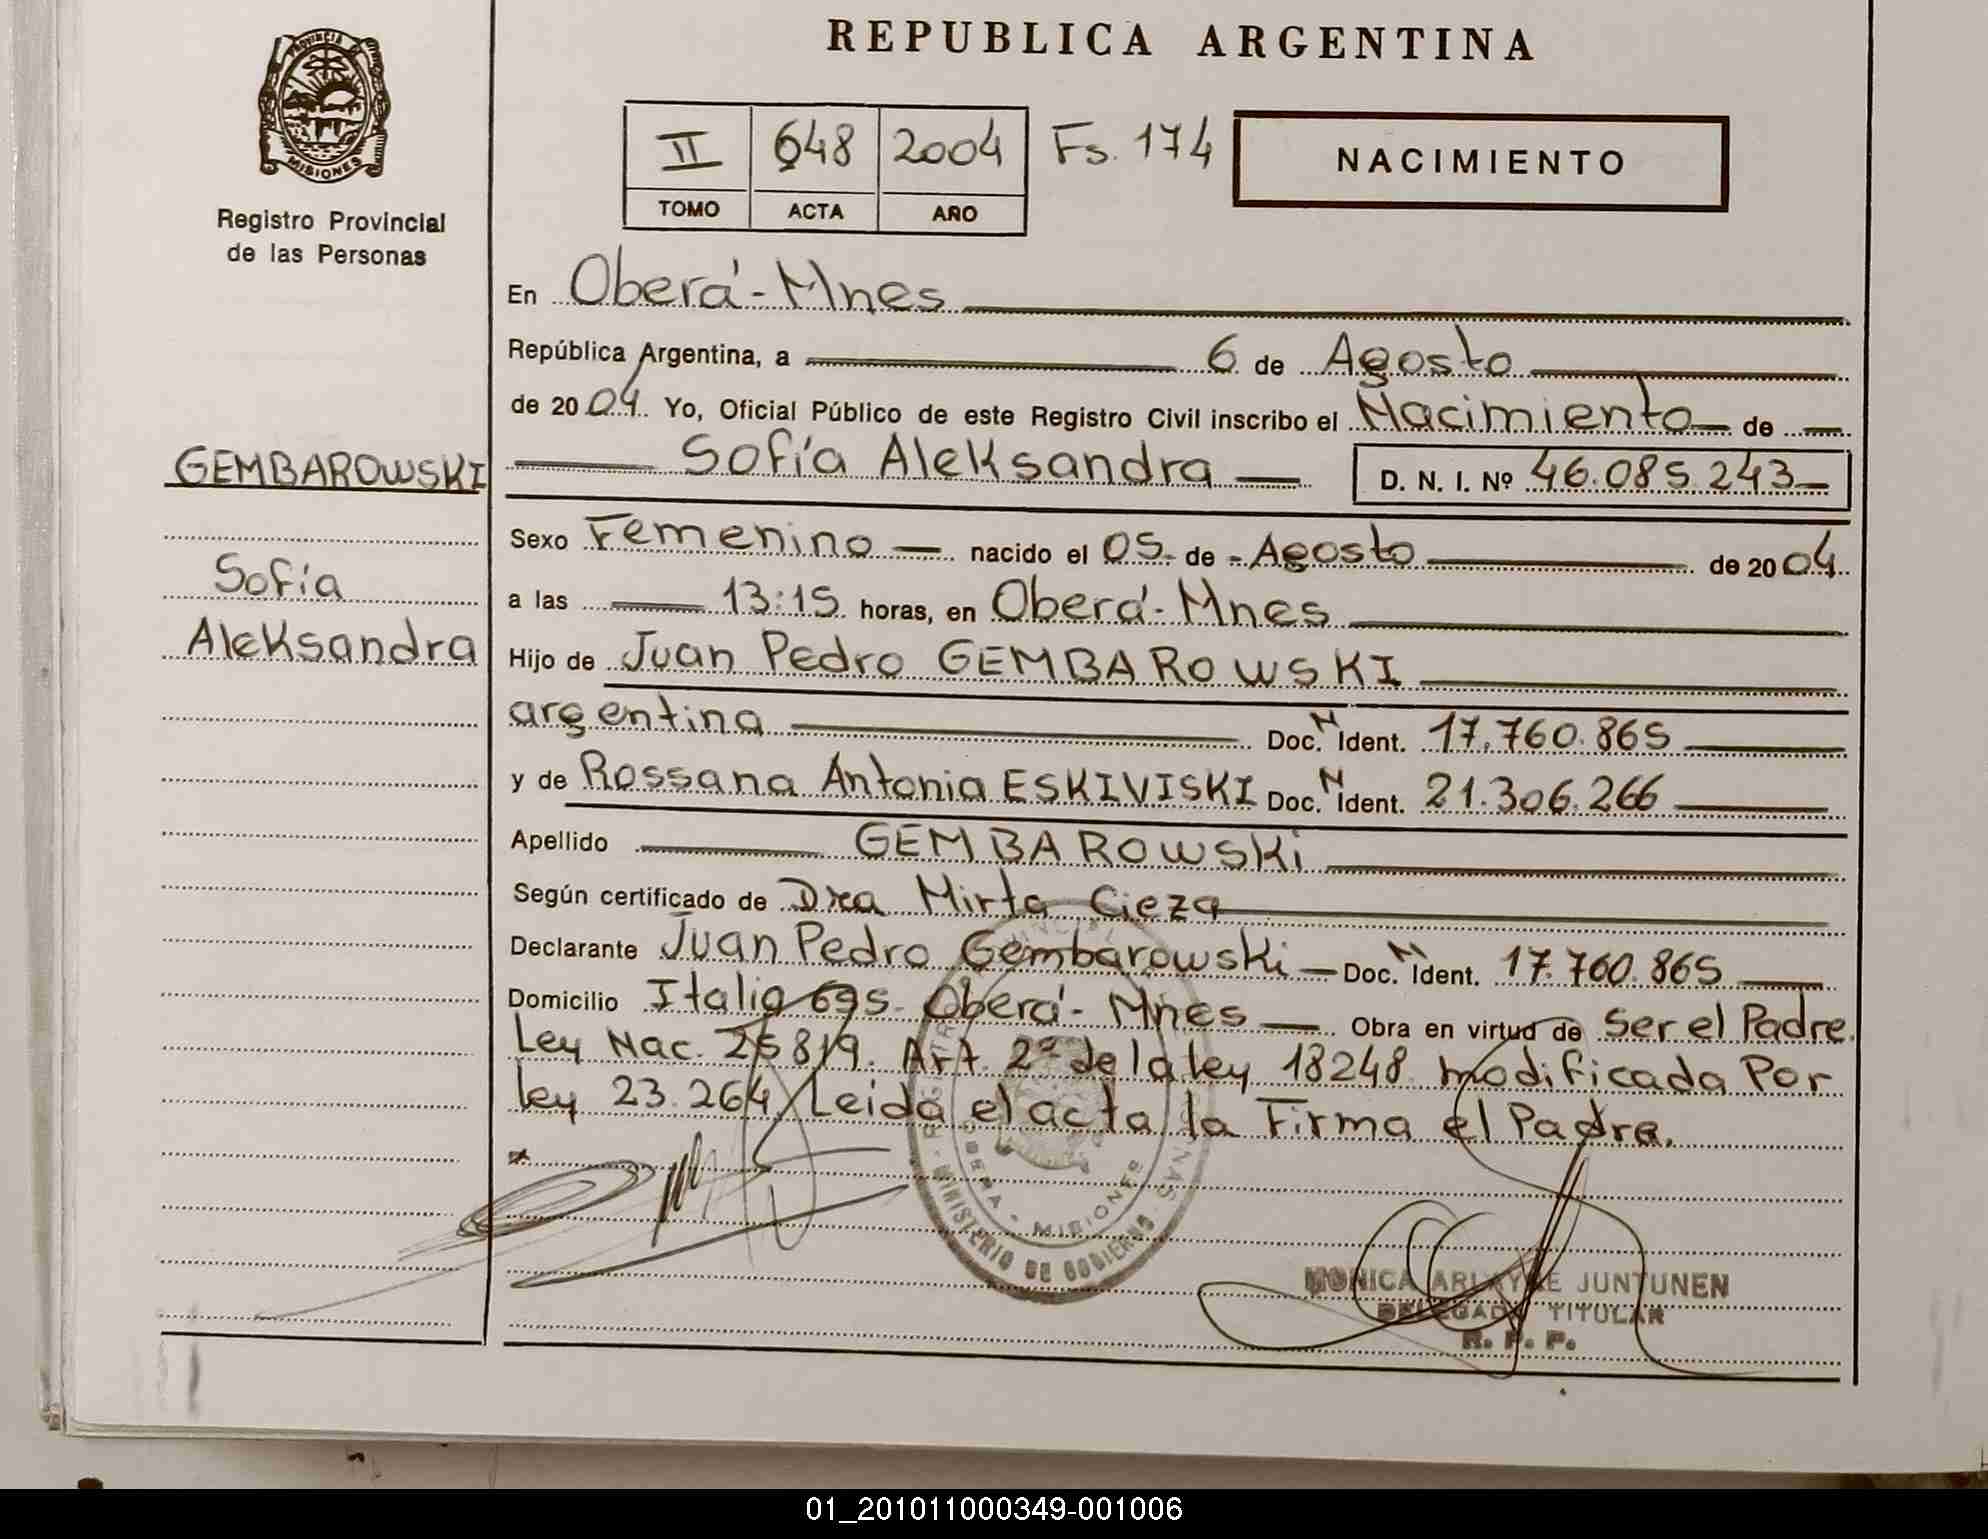 REPUBLICA ARGENTINA
PROVINCIA DE
MISIONES
Registro Provincial
de las Personas
II 648 2004 Fs. 174
TOMO ACTA AÑO
NACIMIENTO
En Oberá - Mnes
República Argentina, a 6 de Agosto
de 2004 Yo, Oficial Público de este Registro Civil inscribo el Nacimiento de
GEMBAROWSKI
Sofía Aleksandra D. N. I. Nº 46.085.243
Sexo Femenino nacido el 05 de Agosto de 2004
Sofía
a las 13:15 horas, en Oberá - Mnes
Aleksandra
Hijo de Juan Pedro GEMBAROWSKI
argentina Doc. N Ident. 17.760.865
y de Rossana Antonia ESKIVISKI Doc. N Ident. 21.306.266
Apellido GEMBAROWSKi
Según certificado de Dra Mirta Cieza
Declarante Juan Pedro Gembarowski Doc. N Ident. 17.760.865
Domicilio Italia 695 - Oberá - Mnes Obra en virtud de Ser el Padre.
Ley Nac. 25819. Art. 2º de la ley 18248 modificada Por
ley 23.264 Leida el acta la Firma el Padre.
OBERA - MISIONES
MINISTERIO DE GOBIERNO
MONICA ARLAYNE JUNTUNEN
DELEGADA TITULAR
R. P. P.
01_201011000349-001006